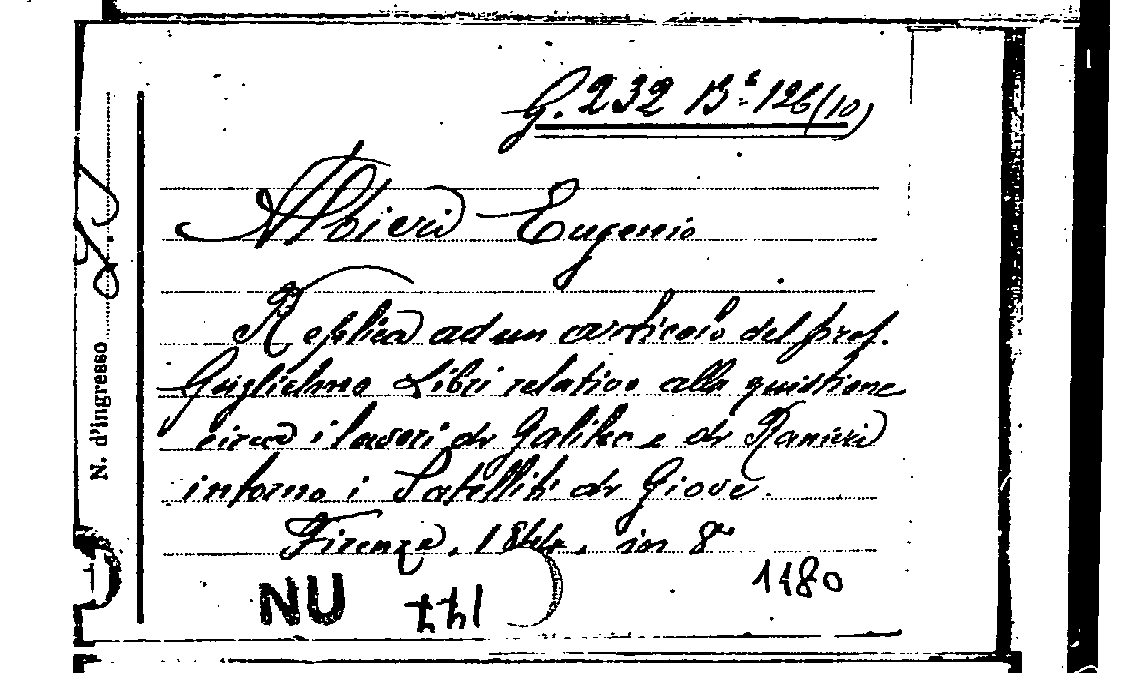 G. 232 Bis. 126(10)
Albieri Eugenio
Replica ad un articolo del prof.
Guglielmo Libri relativo alla quistione
circa i lavori di Galileo e di Ranieri
intorno i Satelliti di Giove.
Firenze, 1844, in 8°
NU
1180
N. d'ingresso